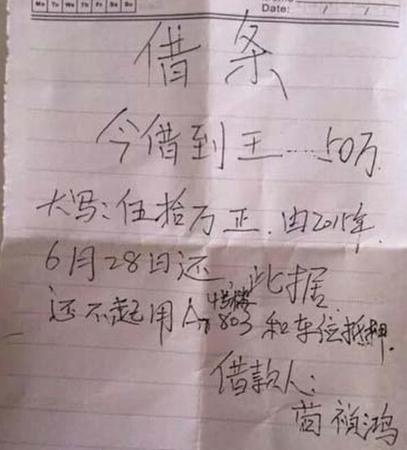 Mo Tu We Th Fr Sa Su
Date: / /
借条
今借到王....50万
大写:伍拾万正.由2015年.
6月28日还,此据
还不起用A 803和车位抵押.
借款人:
祯鸿